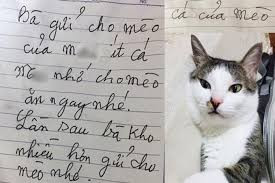 Bà gửi cho mèo
của m ít cá
M nhớ cho mèo
ăn ngay nhé.
Lần sau bà kho
nhiều hơn gửi cho
mèo nhé.
cá của mèo